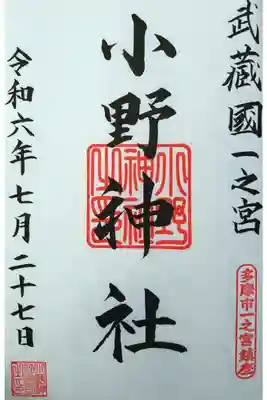 武藏國一之宮
多摩市一之宮鎮座
小野神社
令和六年七月二十七日